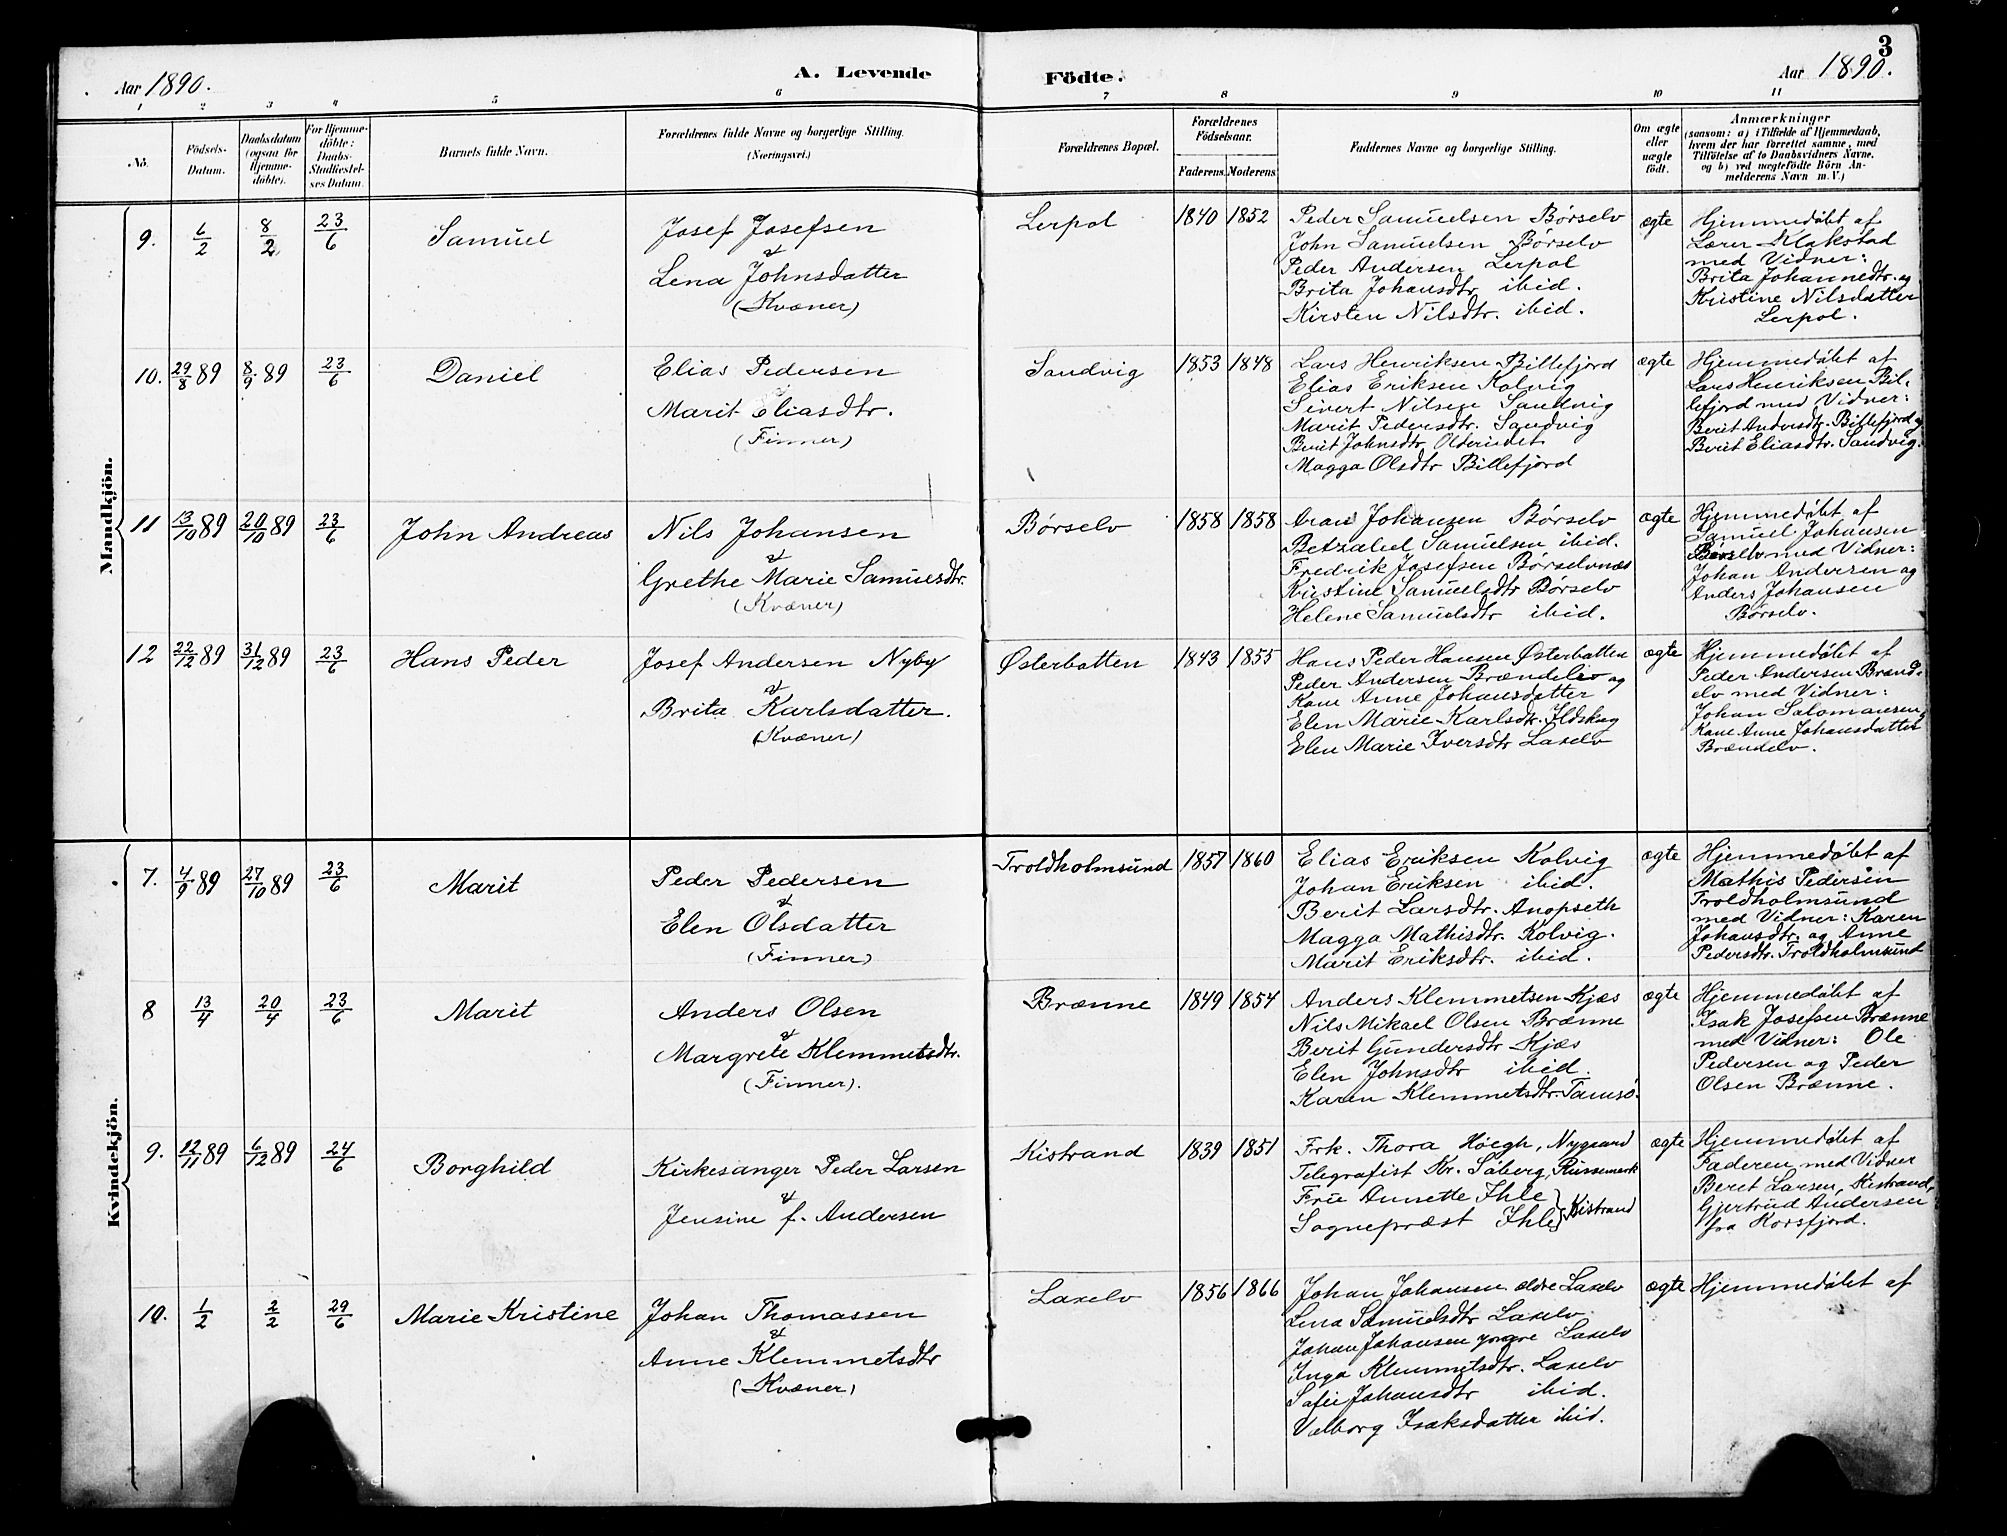 3
Aar 1890.
A. Levende
Födte.
Aar 1890.
1 2 3 4 5 6 7 8 9 10 11
No.
Födsels-
Datum.
Daabsdatum
(ogsaa for
Hjemme-
döbte).
For Hjemme-
döbte:
Daabs-
Stadfæstel-
ses Datum.
Barnets fulde Navn.
Forældrenes fulde Navne og borgerlige Stilling.
(Næringsvei.)
Forældrenes Bopæl.
Forældrenes
Födselsaar.
Faderens. Moderens
Faddernes Navne og borgerlige Stilling.
Om ægte
eller
uægte
födt.
Anmærkninger
(saasom: a) i Tilfælde af Hjemmedaab,
hvem der har forrettet samme, med
Tilföielse af to Daabsvidners Navne,
og b) ved uægtefödte Börn An-
melderens Navn m.V.)
Mandkjön.
9. 6/2 8/2 23/6
Samuel
Josef Josefsen
&
Lena Johnsdatter
(Kvæner)
Lerpol
1840 1852
Peder Samuelsen Børselv
John Samuelsen Børselv
Peder Andersen Lerpol
Brita Johansdtr ibid.
Kirsten Nilsdtr. ibid.
ægte
Hjemmedøbt af
Lærer Klakstad
med Vidner:
Brita Johannedtr. og
Kristine Nilsdatter
Lerpol.
10. 29/8 89 8/9 89 23/6
Daniel
Elias Pedersen
Marit Eliasdtr.
(Finner)
Sandvig
1853 1848
Lars Henriksen Billefjord
Elias Eriksen Kolvig
Sivert Nilsen Sandvig
Marit Pedersdtr. Sandvig
Berit Johnsdtr Olderneset
Magga Olsdtr Billefjord
ægte
Hjemmedøbt af
Lars Henriksen Bil-
lefjord med Vidner:
Berit Andersdtr. Billefjord og
Berit Eliasdtr. Sandvig.
11 13/10 89 20/10 89 23/6
John Andreas
Nils Johansen
&
Grethe Marie Samuelsdtr.
(Kvæner)
Børselv
1858 1858
Aran Johansen Børselv
Betzaleel Samuelsen ibid.
Fredrik Josefsen Børselvnæs
Kristine Samuelsdtr Børselv
Helene Samuelsdtr ibid.
ægte
Hjemmedøbt af
Samuel Johansen
Børselv med Vidner:
Johan Andersen og
Anders Johansen
Børselv.
12 22/12 89 31/12 89 23/6
Hans Peder
Josef Andersen Nyby
&
Brita Karlsdatter.
(Kvæner)
Østerbotten
1843 1855
Hans Peder Hansen Østerbotten
Peder Andersen Brændelv og
Kone Anne Johansdatter
Elen Marie Karlsdtr. Ildskog
Elen Marie Iversdtr Laxelv
ægte
Hjemmedøbt af
Peder Andersen Brænd-
elv med Vidner:
Johan Salomansen,
Kone Anne Johansdatter
Brændelv.
Kvindekjön.
7. 4/9 89 27/10 89 23/6
Marit
Peder Pedersen
&
Elen Olsdatter
(Finner)
Troldholmsund
1857 1860
Elias Eriksen Kolvig
Johan Eriksen ibid.
Berit Larsdtr. Anopseth
Magga Mathisdtr. Kolvig.
Marit Eriksdtr. ibid.
ægte
Hjemmedøbt af
Mathis Pedersen
Troldholmsund
med Vidner: Karen
Johansdtr. og Anne
Pedersdtr. Troldholmsund
8 13/4 20/4 23/6
Marit
Anders Olsen
&
Margrete Klemmetsdtr.
(Finner).
Brænne
1849 1854
Anders Klemmetsen Kjæs
Nils Mikael Olsen Brænne
Berit Gundersdtr Kjæs
Elen Johnsdtr ibid.
Karen Klemmetsdtr. Tamsø.
ægte
Hjemmedøbt af
Isak Josefsen Brænne
med Vidner: Ole
Pedersen og Peder
Olsen Brænne.
9. 12/11 89 6/12 89 24/6
Borghild
Kirkesanger Peder Larsen
&
Jensine f. Andersen
Kistrand
1839 1851
Frk. Thora Høegh, Nygaard
Telegrafist Kr. Søberg, Russemark
Frue Annette Ihle
Sognepræst Ihle } Kistrand
ægte
Hjemmedøbt af
Faderen med Vidner
Beret Larsen, Kistrand,
Gjertrud Andersen
fra Korsfjord.
10. 1/2 2/2 29/6
Marie Kristine
Johan Thomassen
&
Anne Klemmetsdtr
(Kvæner)
Laxelv
1856 1866
Johan Johansen ældre Laxelv
Lena Samuelsdtr Laxelv.
Johan Johansen yngre Laxelv
Inga Klemmetsdtr. Laxelv
Safei Johansdtr ibid.
Valborg Isaksdatter ibid.
ægte
Hjemmedøbt af